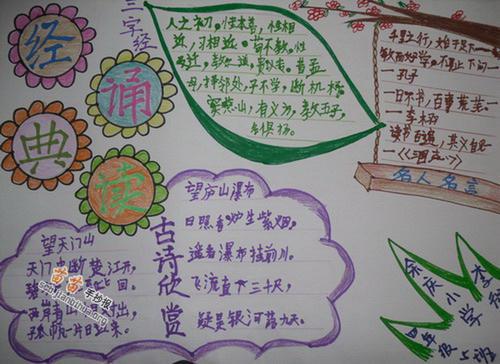 经
诵
典
读
三字经
人之初,性本善,性相
近,习相远。苟不教,性
迁,教之道,贵以专。昔孟
母,择邻处,子不学,断机杼
窦燕山,有义方,教五子,
名俱扬。
千里之行,始于足下
敏而好学,不耻下问
—孔子
一日不书,百事荒芜
—李
读书百遍,其义自
—《三国志》
名人名言
望天门山
天门中断楚江开,
回。
两岸青山 对出
孤帆一片日边来。
古诗欣赏
望庐山瀑布
日照香炉生紫烟,
遥看瀑布挂前川。
飞流直下三千尺,
疑是银河落九天。
余庆小学
四年级
李
苗苗手抄报